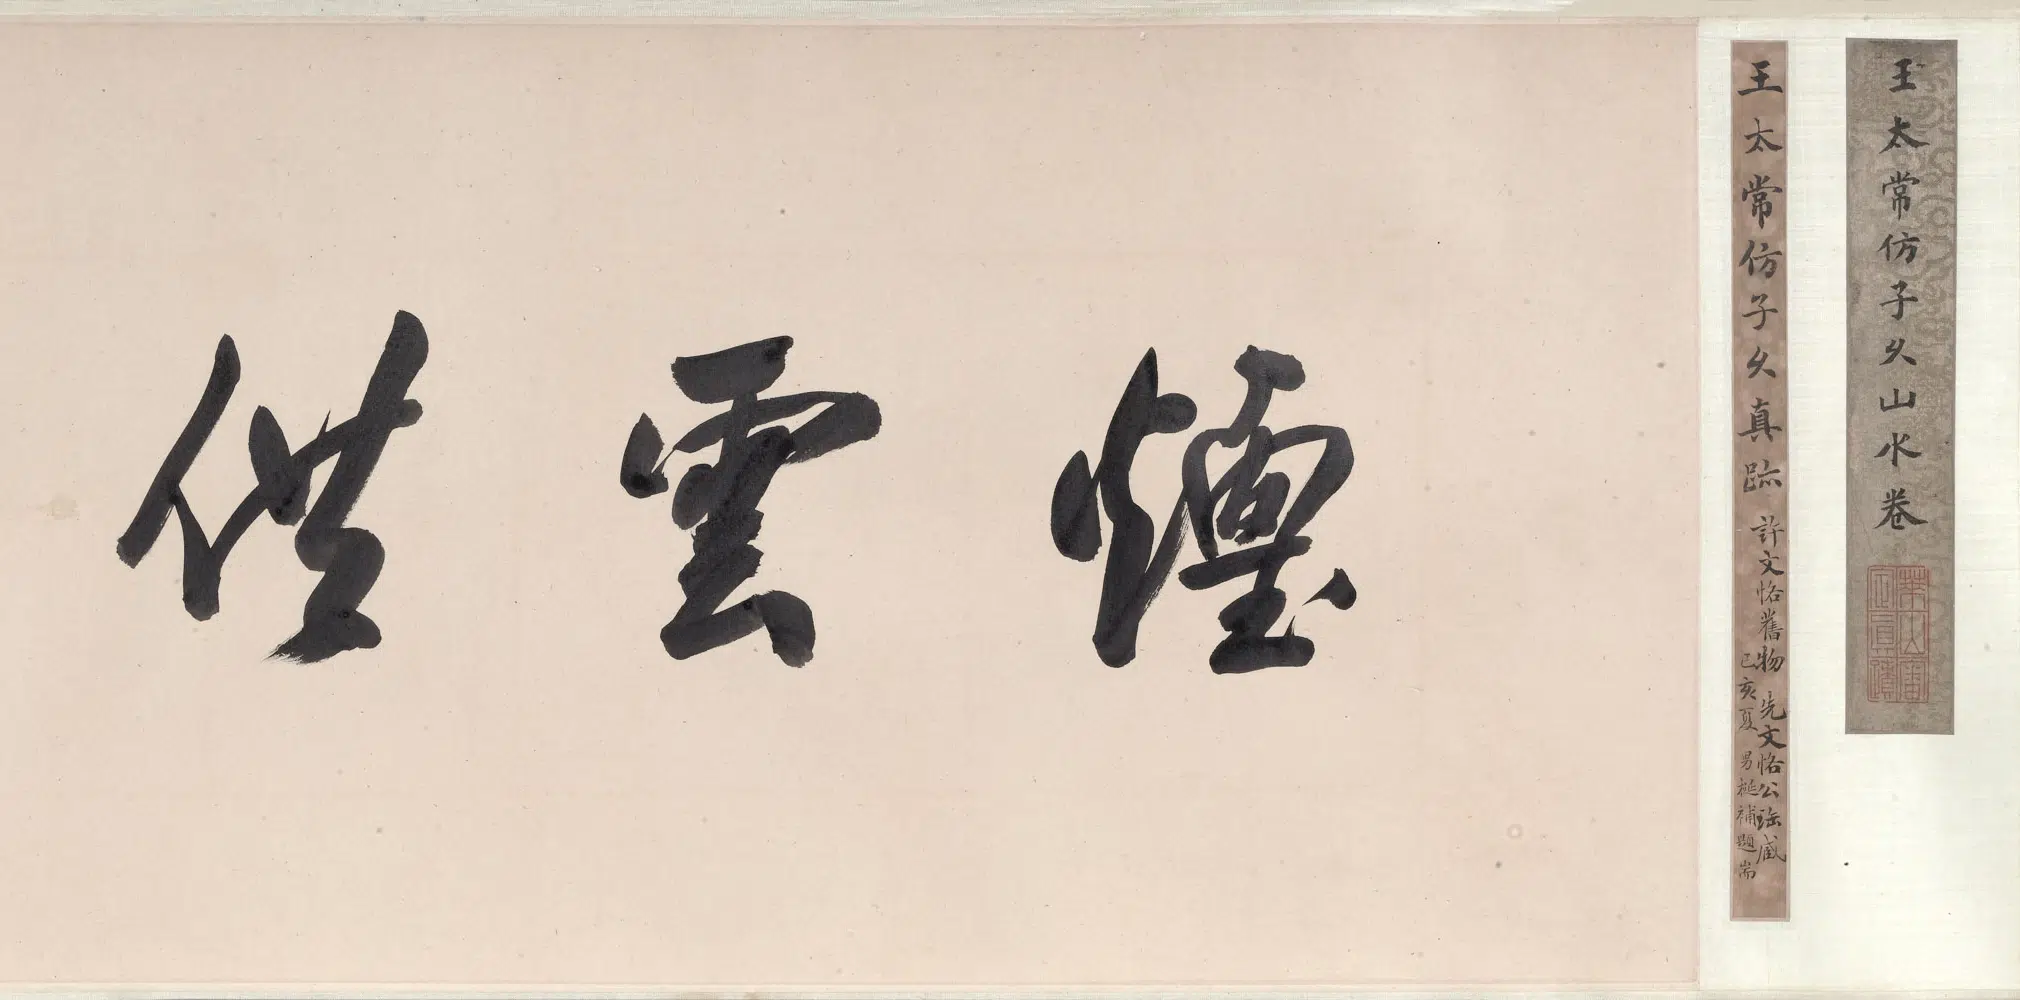 王太常仿子久山水卷
王太常仿子久真跡
許文恪舊物 先文恪公珎藏
己亥夏 男槤補題耑
煙雲供